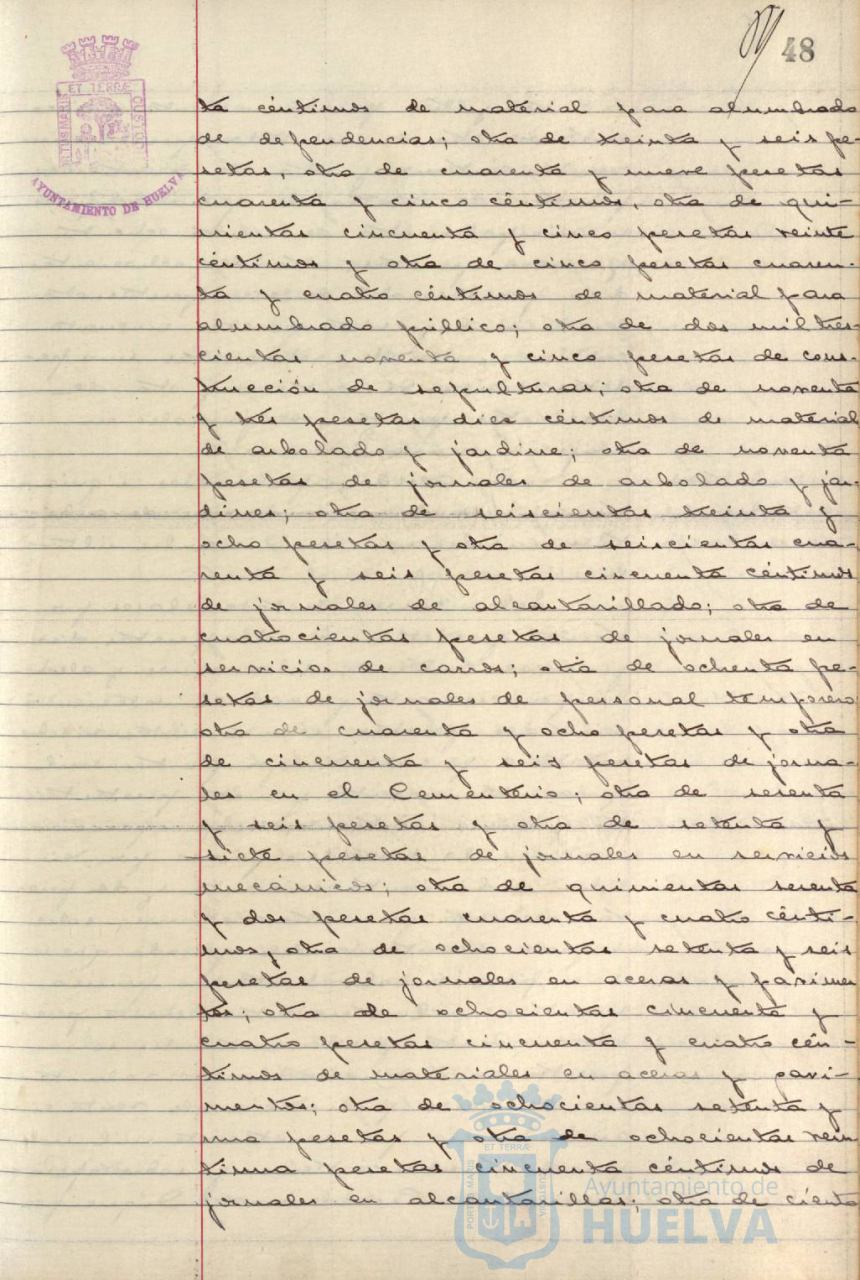 48
ET TERRÆ
CUSTOS
AYUNTAMIENTO DE HUELVA
ta céntimos de material para alumbrado
de dependencias; otra de treinta y seis pe-
setas, otra de cuarenta y nueve pesetas
cuarenta y cinco céntimos, otra de qui-
nientas cincuenta y cinco pesetas veinte
céntimos y otra de cinco pesetas cuaren-
ta y cuatro céntimos de material para
alumbrado público; otra de dos mil tres-
cientas noventa y cinco pesetas de cons-
trucción de sepulturas; otra de noventa
y tres pesetas diez céntimos de material
de arbolado y jardine; otra de noventa
pesetas de jornales de arbolado y jar-
dines; otra de seiscientas treinta y
ocho pesetas y otra de seiscientas cua-
renta y seis pesetas cincuenta céntimos
de jornales de alcantarillado; otra de
cuatrocientas pesetas de jornales en
servicios de carros; otra de ochenta pe-
setas de jornales de personal temporero
otra de cuarenta y ocho pesetas y otra
de cincuenta y seis pesetas de jorna-
les en el Cementerio; otra de sesenta
y seis pesetas y otra de setenta y
siete pesetas de jornales en servicios
mecánicos; otra de quinientas sesenta
y dos pesetas cuarenta y cuatro cénti-
mos, otra de ochocientas setenta y seis
pesetas de jornales en aceras y pavimen
tos; otra de ochocientas cincuenta y
cuatro pesetas cincuenta y cuatro cén-
timos de materiales en aceras y pavi-
mentos; otra de ochocientas setenta y
una pesetas y otra de ochocientas vein
tiuna pesetas cincuenta céntimos de
jornales en alcantarillas; otra de ciento
ET TERRÆ
Ayuntamiento de
HUELVA